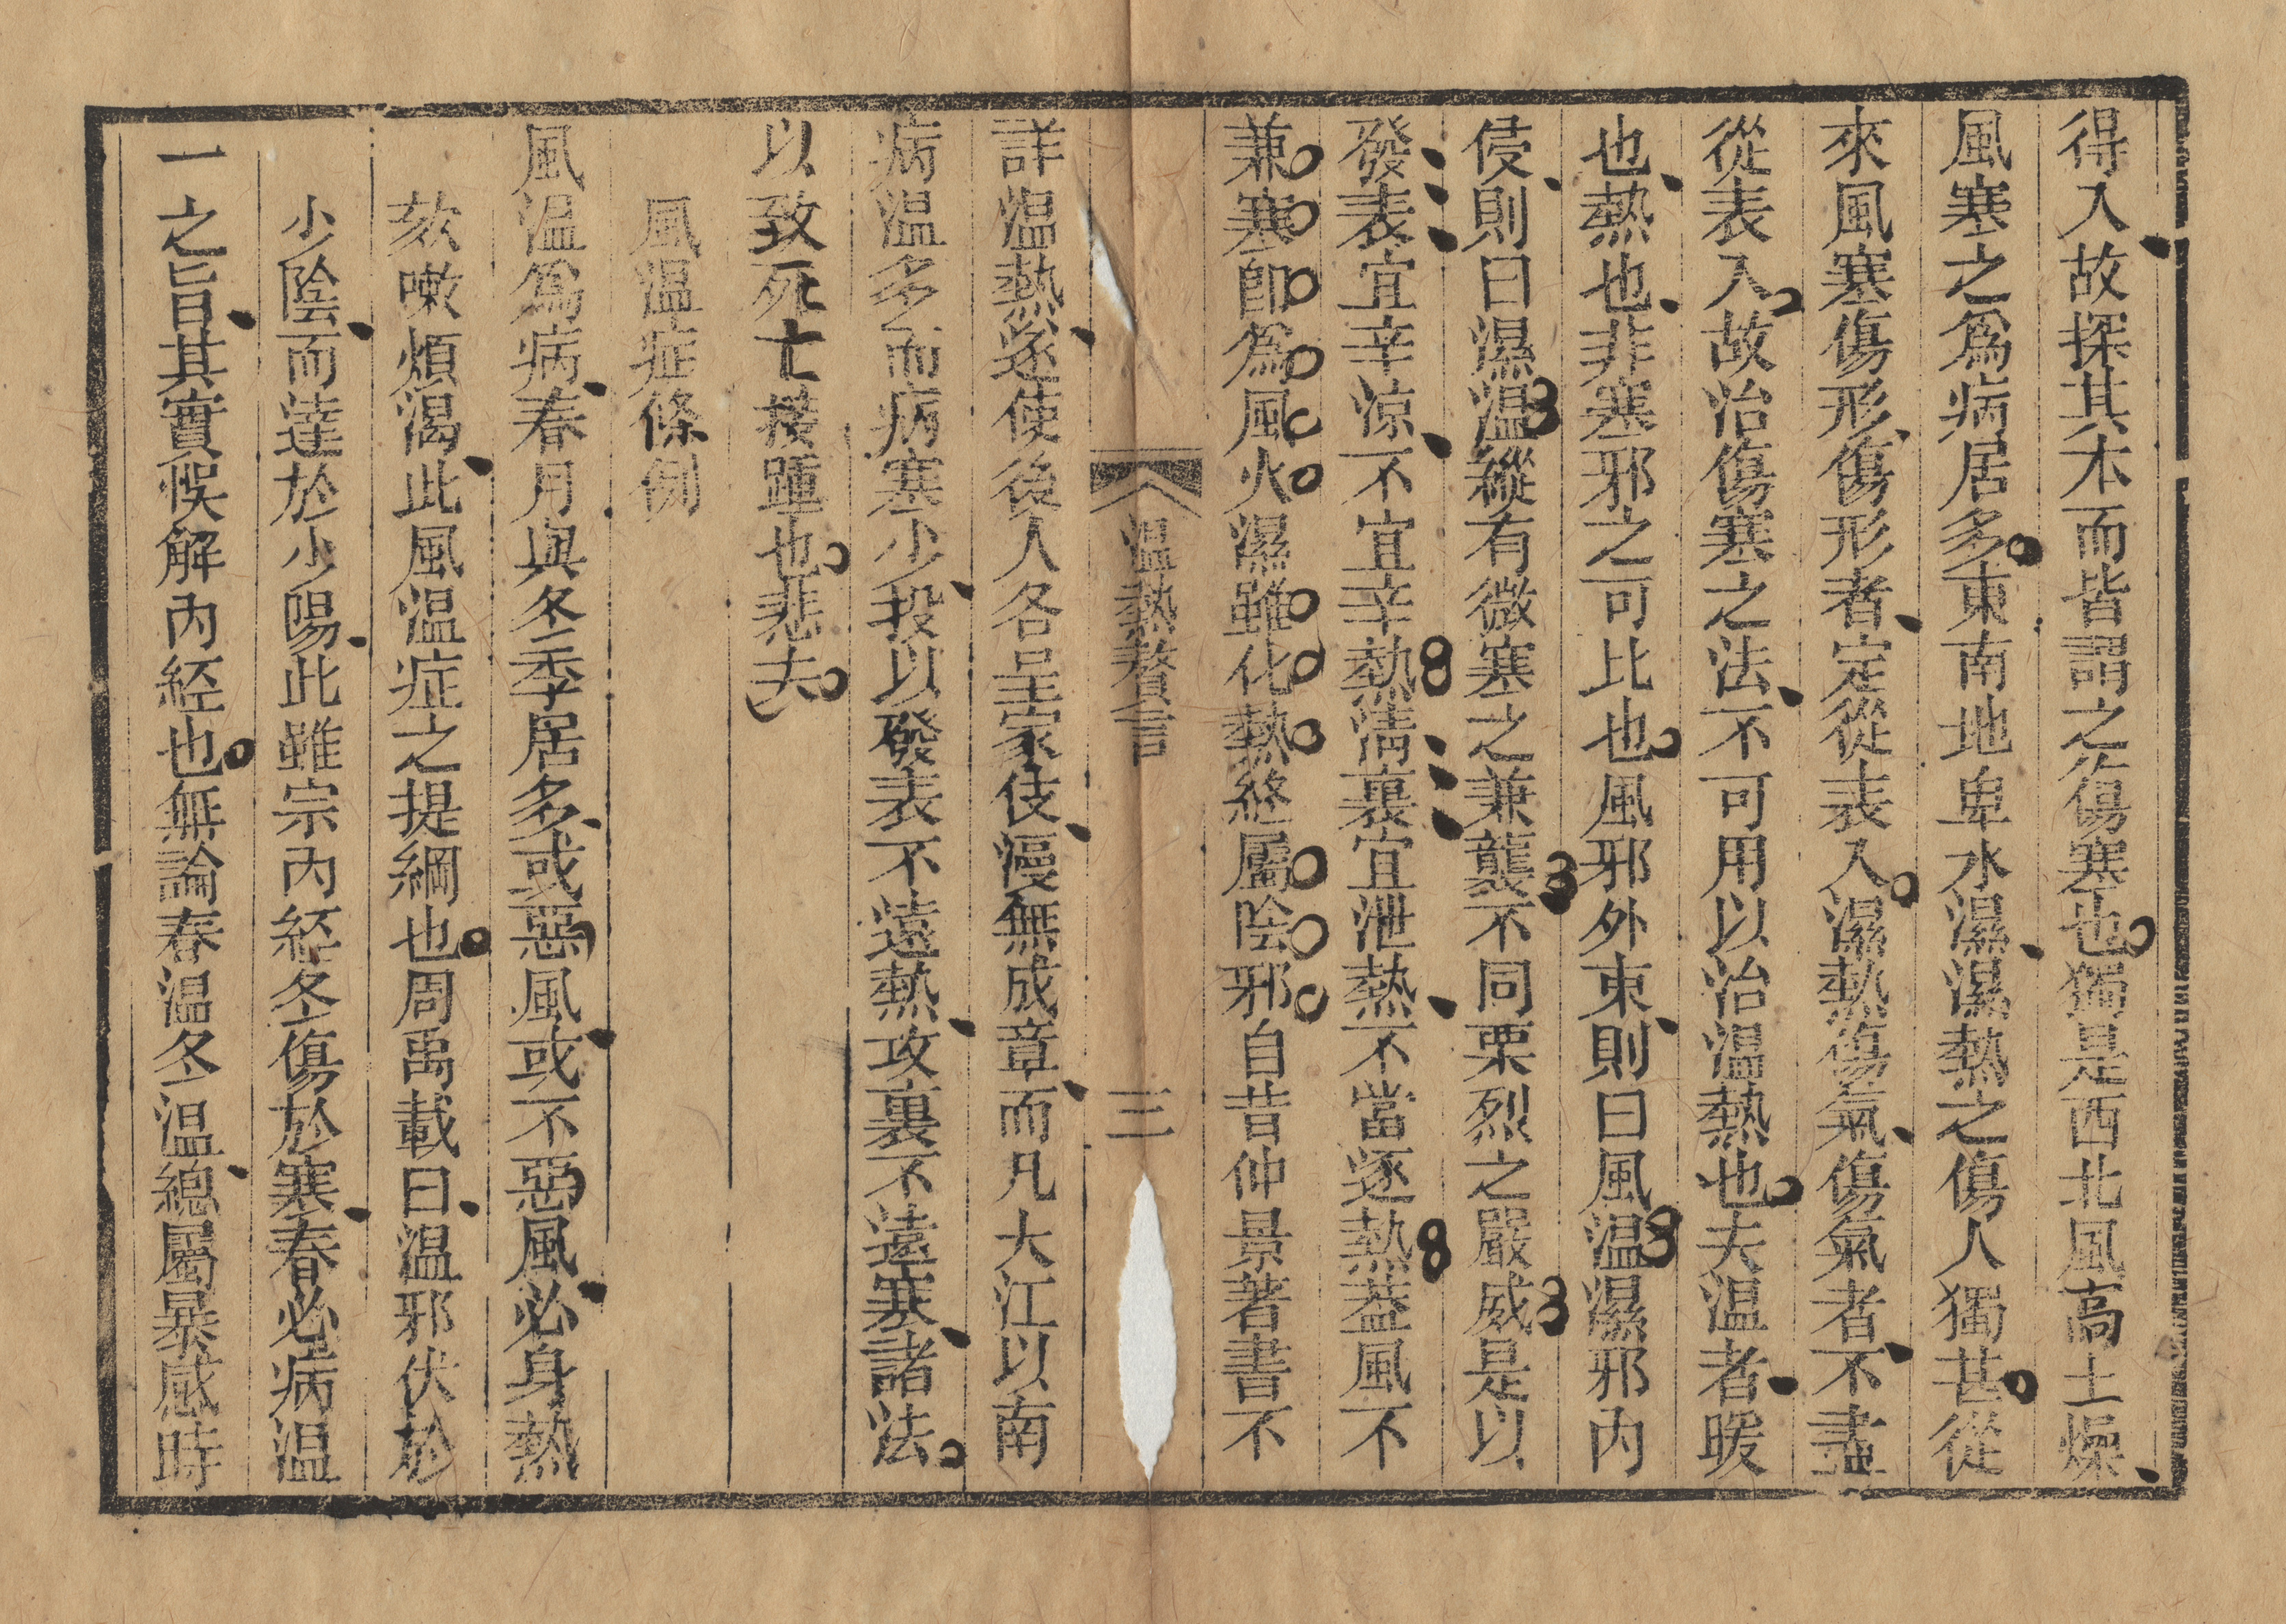 得入故探其本而皆謂之傷寒也獨是西北風高土燥
風寒之爲病居多東南地卑水濕濕熱之傷人獨甚從
來風寒傷形傷形者定從表入濕熱傷氣傷氣者不盡
從表入故治傷寒之法不可用以治温熱也夫温者暖
也熱也非寒邪之可比也風邪外束則曰風温濕邪内
侵則曰濕温縱有微寒之兼襲不同栗烈之嚴威是以
發表宜辛涼不宜辛熱清裏宜泄熱不當逐熱葢風不
兼寒卽爲風火濕雖化熱終屬陰邪自昔仲景著書不
温熱贅言
三
詳温熱遂使後人各呈家伎漫無成章而凡大江以南
病温多而病寒少投以發表不遠熱攻裏不遠寒諸法
以致死亡接踵也悲夫
風温症條例
風温爲病春月與冬季居多或惡風或不惡風必身熱
欬嗽煩渴此風温症之提綱也周禹載曰温邪伏於
少陰而達於少陽此雖宗内經冬傷於寒春必病温
一之旨其實悞解内經也無論春温冬温總屬暴感時